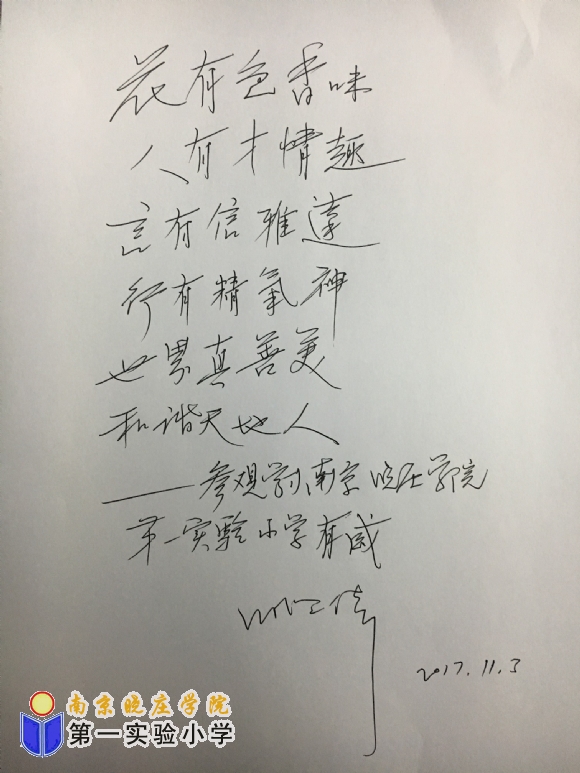 花有色香味
人有才情趣
言有信雅達
行有精氣神
世界真善美
和谐天地人
——参观学习南京晓庄学院
第一实验小学有感
2017.11.3
南京晓庄学院
第一实验小学